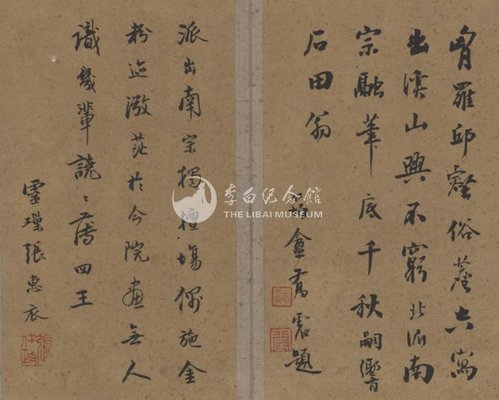 胷羅邱壑俗塵空寫
出溪山興不窮北派南
宗融筆底千秋嗣響
石田翁
盦題
派出南宗獨擅場偶施金
粉迹茫於今院畫無人
識幾輩譊〻薄四王
靈璅張惠衣
李白纪念馆
THE LIBAI MUSEUM